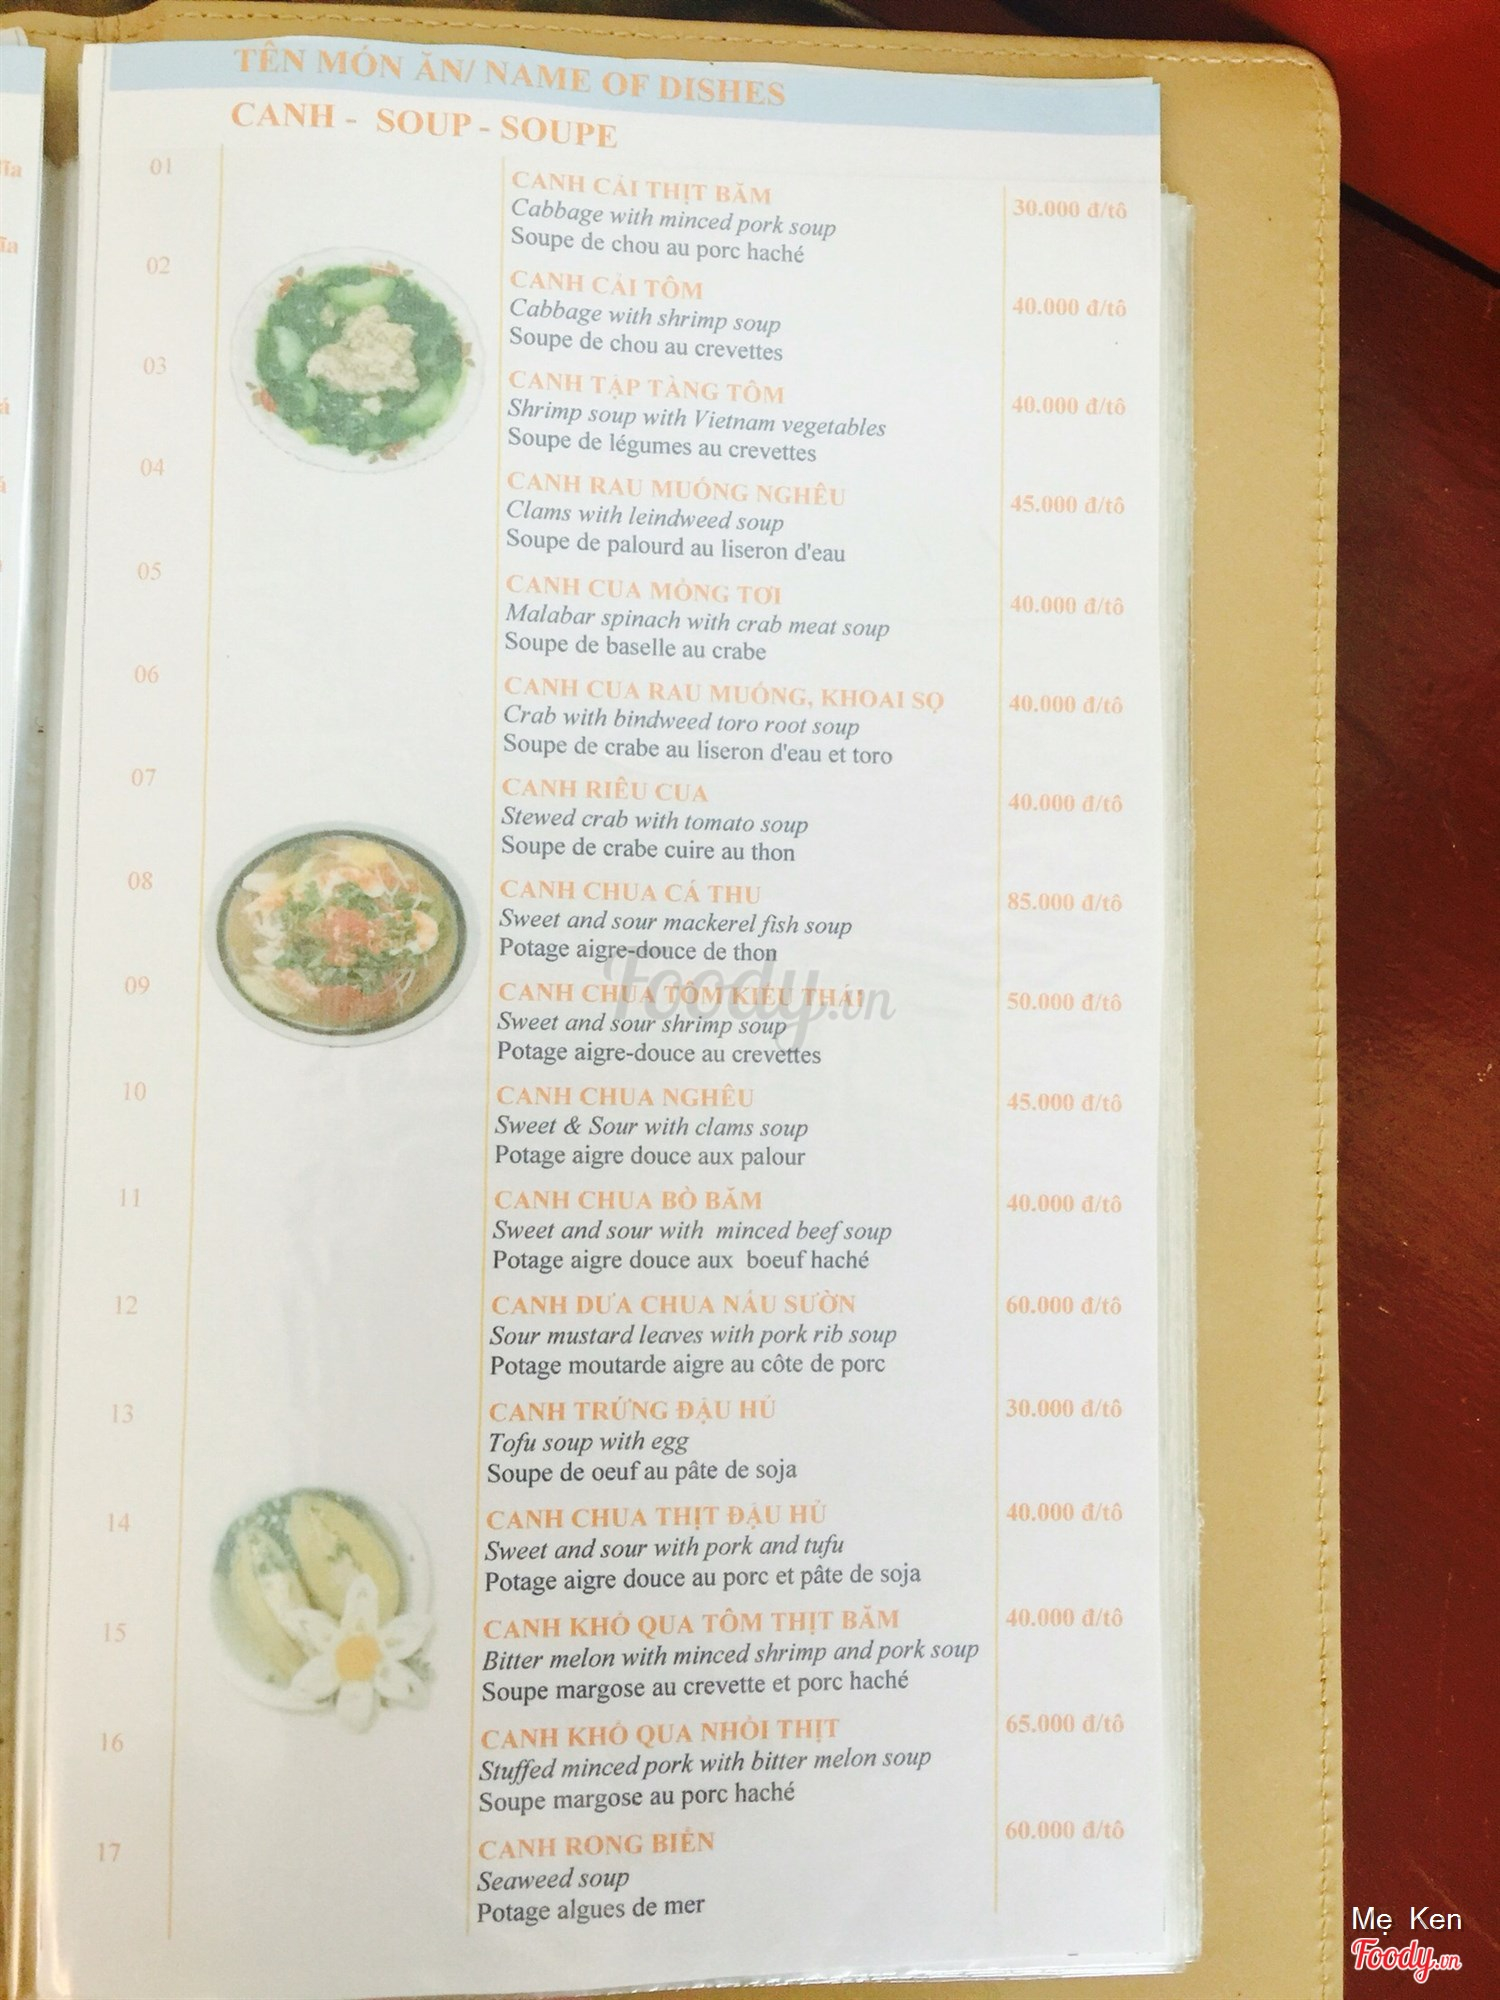 TÊN MÓN ĂN/ NAME OF DISHES
CANH - SOUP - SOUPE
01
CANH CẢI THỊT BẰM
30.000 đ/tô
Cabbage with minced pork soup
Soupe de chou au porc haché
02
CANH CẢI TÔM
40.000 đ/tô
Cabbage with shrimp soup
Soupe de chou au crevettes
03
CANH TẬP TÀNG TÔM
40.000 đ/tô
Shrimp soup with Vietnam vegetables
Soupe de légumes au crevettes
04
CANH RAU MUỐNG NGHÊU
45.000 đ/tô
Clams with leindweed soup
Soupe de palourd au liseron d'eau
05
CANH CUA MỒNG TƠI
40.000 đ/tô
Malabar spinach with crab meat soup
Soupe de baselle au crabe
06
CANH CUA RAU MUỐNG, KHOAI SỌ
40.000 đ/tô
Crab with bindweed toro root soup
Soupe de crabe au liseron d'eau et toro
07
CANH RIÊU CUA
40.000 đ/tô
Stewed crab with tomato soup
Soupe de crabe cuire au thon
08
CANH CHUA CÁ THU
85.000 đ/tô
Sweet and sour mackerel fish soup
Potage aigre-douce de thon
09
CANH CHUA TÔM KIỂU THÁI
50.000 đ/tô
Sweet and sour shrimp soup
Potage aigre-douce au crevettes
10
CANH CHUA NGHÊU
45.000 đ/tô
Sweet & Sour with clams soup
Potage aigre douce aux palour
11
CANH CHUA BÒ BẰM
40.000 đ/tô
Sweet and sour with minced beef soup
Potage aigre douce aux boeuf haché
12
CANH DƯA CHUA NẤU SƯỜN
60.000 đ/tô
Sour mustard leaves with pork rib soup
Potage moutarde aigre au côte de porc
13
CANH TRỨNG ĐẬU HỦ
30.000 đ/tô
Tofu soup with egg
Soupe de oeuf au pâte de soja
14
CANH CHUA THỊT ĐẬU HỦ
40.000 đ/tô
Sweet and sour with pork and tufu
Potage aigre douce au porc et pâte de soja
15
CANH KHỔ QUA TÔM THỊT BẰM
40.000 đ/tô
Bitter melon with minced shrimp and pork soup
Soupe margose au crevette et porc haché
16
CANH KHỔ QUA NHỒI THỊT
65.000 đ/tô
Stuffed minced pork with bitter melon soup
Soupe margose au porc haché
17
CANH RONG BIỂN
60.000 đ/tô
Seaweed soup
Potage algues de mer
Foody.vn
Mẹ Ken
Foody.vn